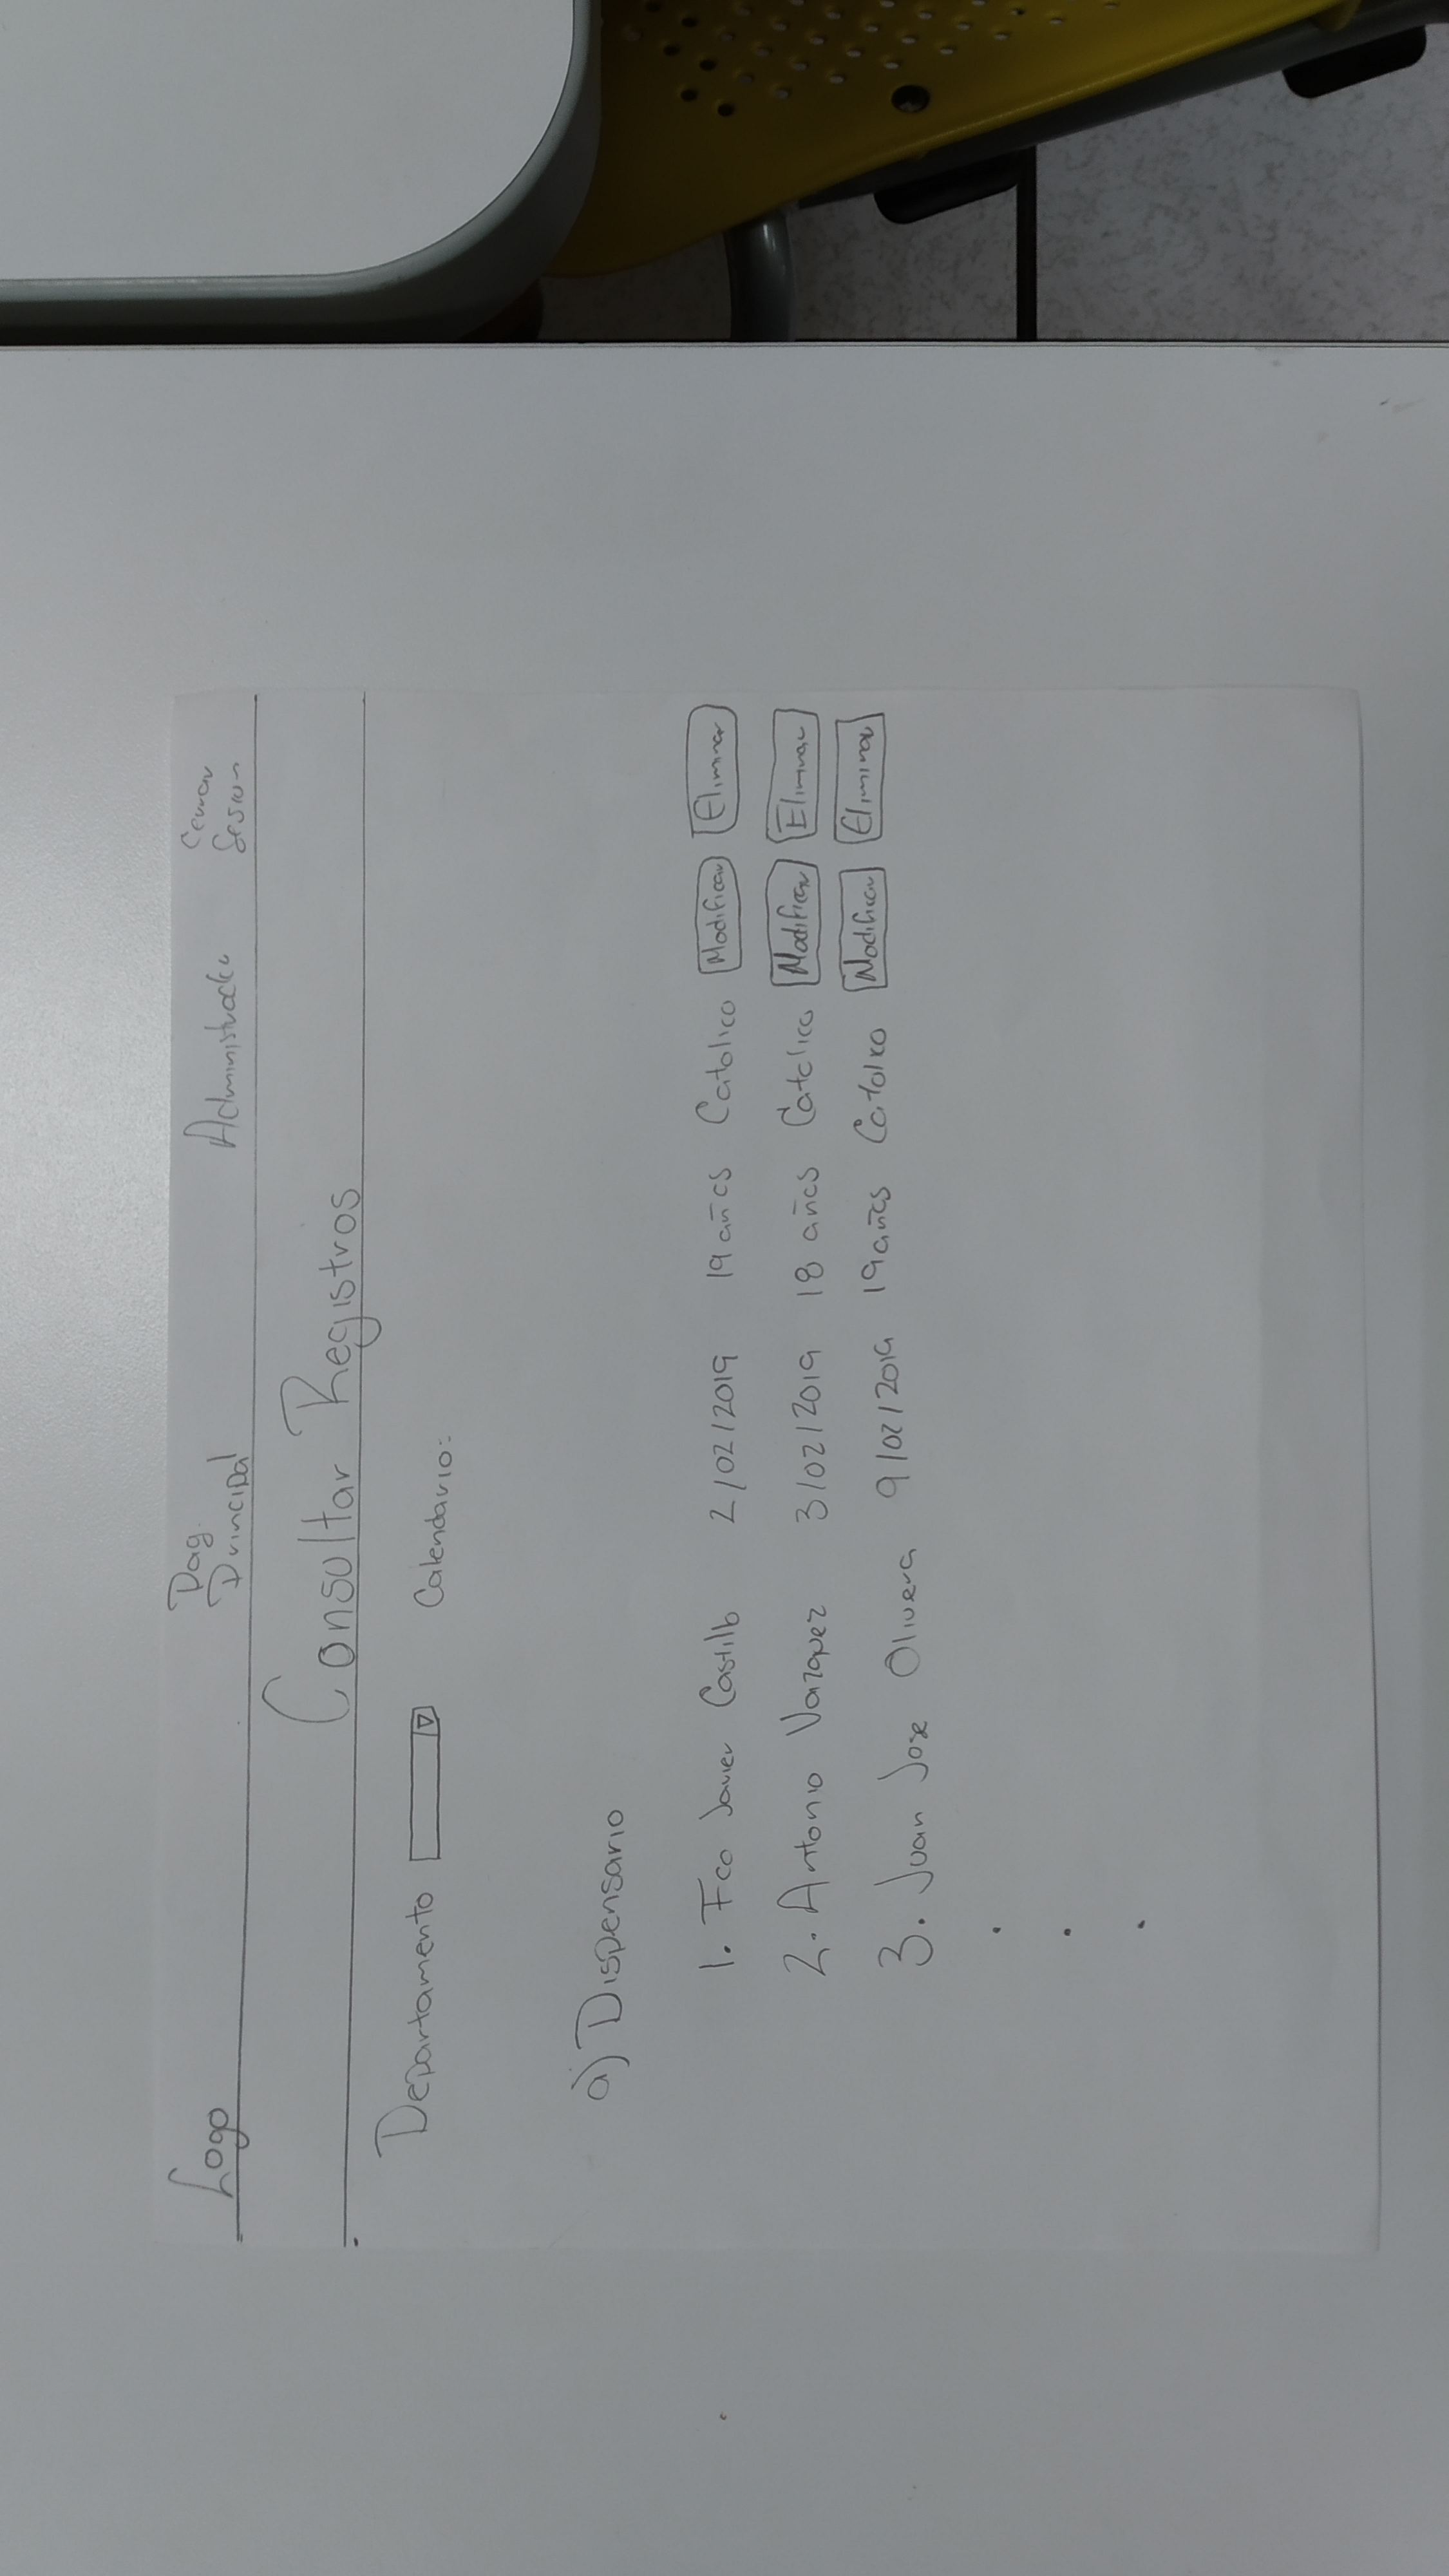 Logo Pag. Principal Administrador Cerrar Sesion
Consultar Registros
Departamento Calendario:
a) Dispensario
1. Fco Javier Castillo 2/02/2019 19 años Catolico Modificar Eliminar
2. Antonio Vazquez 3/02/2019 18 años Catolico Modificar Eliminar
3. Juan Jose Olivera 9/02/2019 19 años Catolico Modificar Eliminar